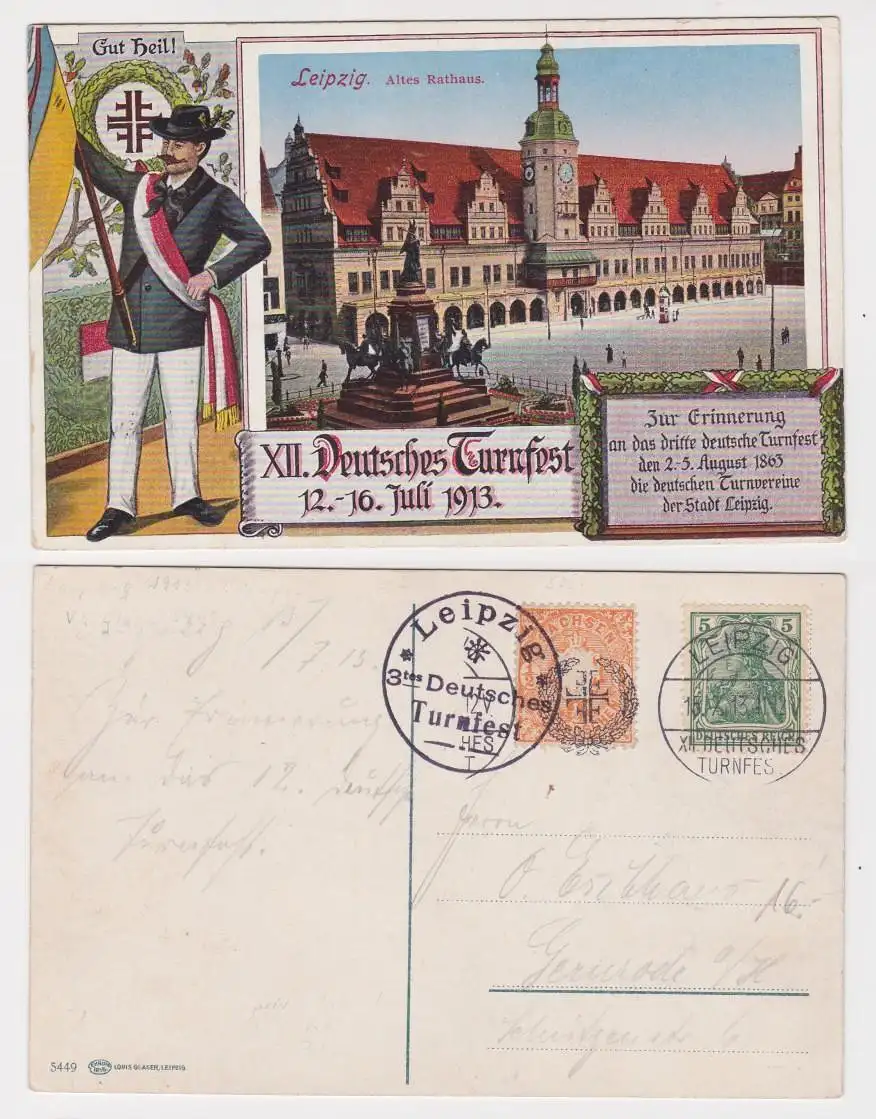 Gut Heil!
Leipzig. Altes Rathaus.
XII. Deutsches Turnfest
12.-16. Juli 1913.
Zur Erinnerung
an das dritte deutsche Turnfest
den 2.-5. August 1863
die deutschen Turnvereine
der Stadt Leipzig.
Leipzig
3tes Deutsches
Turnfest
SACHSEN
5 5
DEUTSCHES REICH
LEIPZIG
XII DEUTSCHES
TURNFES
7. 13.
Zur Erinnerung
an das 12. deutsche
Turnfest.
Herrn
O.
16.-
Gernrode a/H
5449 LOUIS GLASER, LEIPZIG